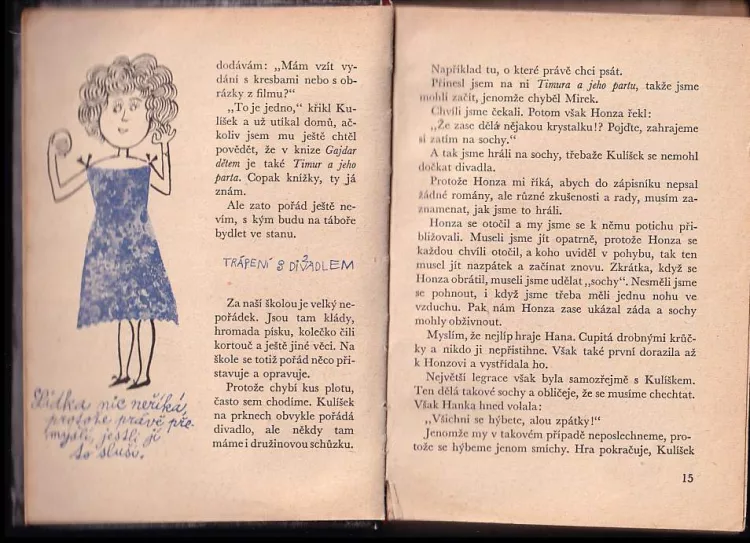 dodávám: „Mám vzít vy-
dání s kresbami nebo s ob-
rázky z filmu?“
„To je jedno,“ křikl Ku-
líšek a už utíkal domů, ač-
koliv jsem mu ještě chtěl
povědět, že v knize Gajdar
dětem je také Timur a jeho
parta. Copak knížky, ty já
znám.
Ale zato pořád ještě ne-
vím, s kým budu na táboře
bydlet ve stanu.
TRÁPENÍ S DIVADLEM
Za naší školou je velký ne-
pořádek. Jsou tam klády,
hromada písku, kolečko čili
kortouč a ještě jiné věci. Na
škole se totiž pořád něco při-
stavuje a opravuje.
Protože chybí kus plotu,
často sem chodíme. Kulíšek
na prknech obvykle pořádá
divadlo, ale někdy tam
máme i družinovou schůzku.
Lidka nic neříká,
protože právě pře-
mýšlí, jestli jí
to sluší.
Například tu, o které právě chci psát.
Přinesl jsem na ni Timura a jeho partu, takže jsme
mohli začít, jenomže chyběl Mirek.
Chvíli jsme čekali. Potom však Honza řekl:
„Že zase dělá nějakou krystalku!? Pojďte, zahrajeme
si zatím na sochy.“
A tak jsme hráli na sochy, třebaže Kulíšek se nemohl
dočkat divadla.
Protože Honza mi říká, abych do zápisníku nepsal
žádné romány, ale různé zkušenosti a rady, musím za-
znamenat, jak jsme to hráli.
Honza se otočil a my jsme se k němu potichu při-
bližovali. Museli jsme jít opatrně, protože Honza se
každou chvíli otočil, a koho uviděl v pohybu, tak ten
musel jít nazpátek a začínat znovu. Zkrátka, když se
Honza obrátil, museli jsme udělat „sochy“. Nesměli jsme
se pohnout, i když jsme třeba měli jednu nohu ve
vzduchu. Pak nám Honza zase ukázal záda a sochy
mohly obživnout.
Myslím, že nejlíp hraje Hana. Cupitá drobnými krůč-
ky a nikdo ji nepřistihne. Však také první dorazila až
k Honzovi a vystřídala ho.
Největší legrace však byla samozřejmě s Kulíškem.
Ten dělá takové sochy a obličeje, že se musíme chechtat.
Však Hanka hned volala:
„Všichni se hýbete, alou zpátky!“
Jenomže my v takovém případě neposlechneme, pro-
tože se hýbeme jenom smíchy. Hra pokračuje, Kulíšek
15